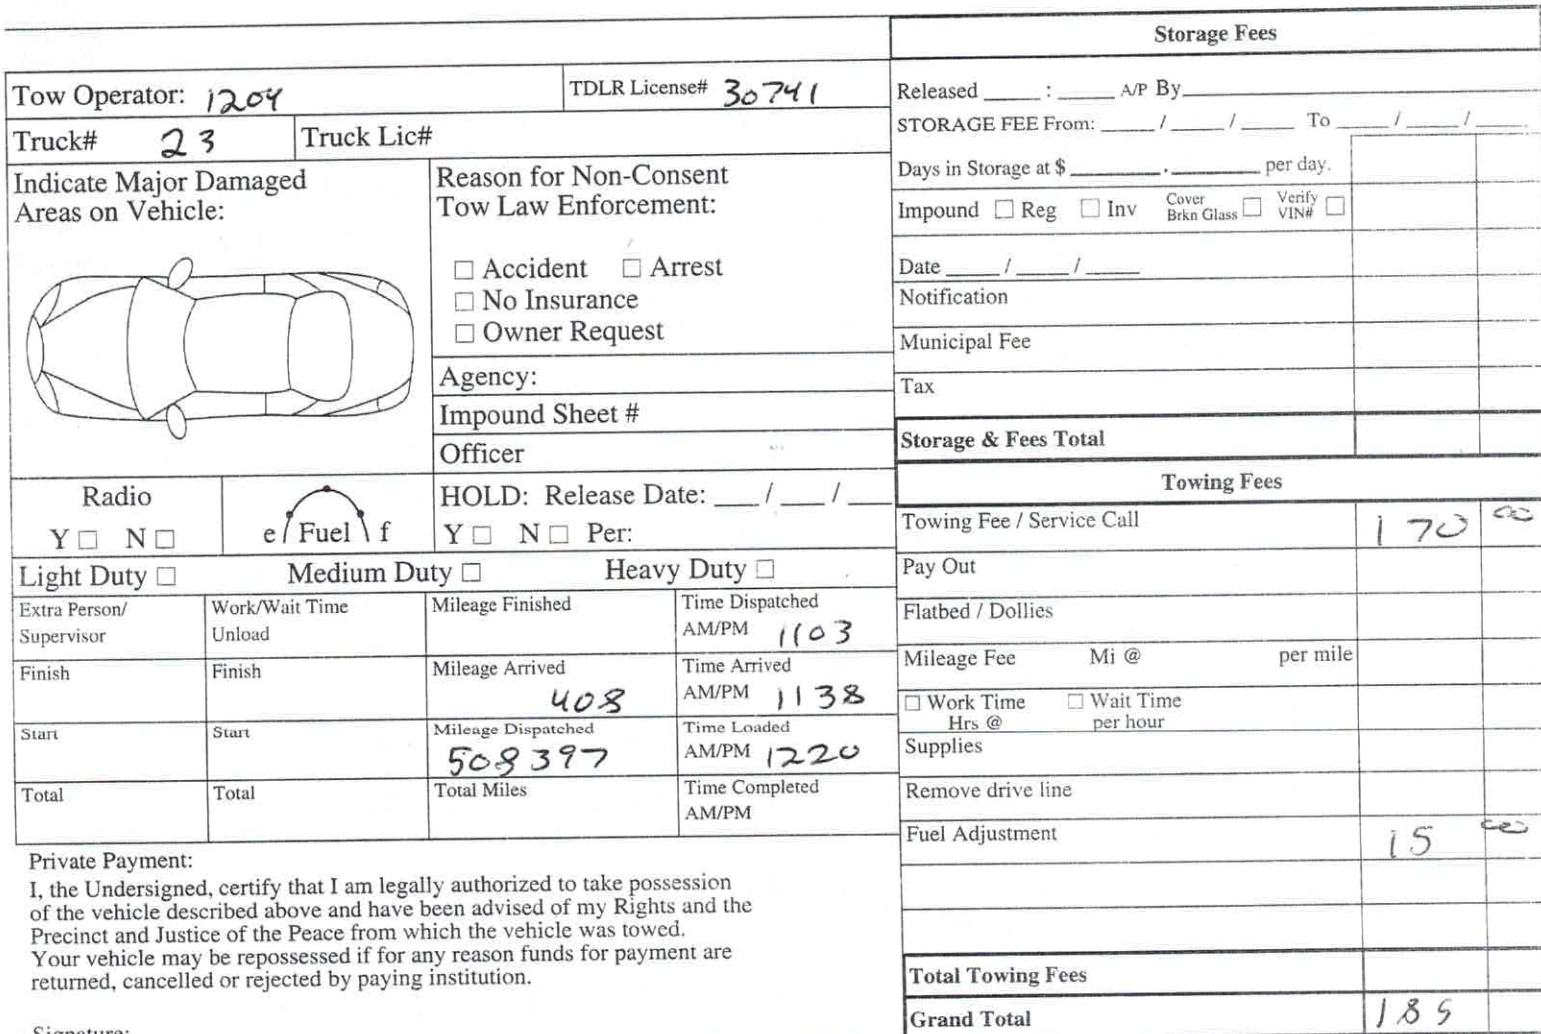 Storage Fees
Tow Operator: 1204
TDLR License# 30741
Truck# 23
Truck Lic#
Indicate Major Damaged
Areas on Vehicle:
Reason for Non-Consent
Tow Law Enforcement:
☐ Accident ☐ Arrest
☐ No Insurance
☐ Owner Request
Agency:
Impound Sheet #
Officer
Radio
Y ☐ N ☐
e / Fuel \ f
HOLD: Release Date: ___ / ___ / ___
Y ☐ N ☐ Per:
Light Duty ☐ Medium Duty ☐ Heavy Duty ☐
Extra Person/
Supervisor
Work/Wait Time
Unload
Mileage Finished
Time Dispatched
AM/PM 1103
Finish
Finish
Mileage Arrived
408
Time Arrived
AM/PM 1138
Start
Start
Mileage Dispatched
508397
Time Loaded
AM/PM 1220
Total
Total
Total Miles
Time Completed
AM/PM
Private Payment:
I, the Undersigned, certify that I am legally authorized to take possession
of the vehicle described above and have been advised of my Rights and the
Precinct and Justice of the Peace from which the vehicle was towed.
Your vehicle may be repossessed if for any reason funds for payment are
returned, cancelled or rejected by paying institution.
Signature:
Released ____ : ____ A/P By____
STORAGE FEE From: ____ / ____ / ____ To ____ / ____ / ____
Days in Storage at $ ____ . ____ per day.
Impound ☐ Reg ☐ Inv Cover Brkn Glass ☐ Verify VIN# ☐
Date ____ / ____ / ____
Notification
Municipal Fee
Tax
Storage & Fees Total
Towing Fees
Towing Fee / Service Call 170 00
Pay Out
Flatbed / Dollies
Mileage Fee Mi @ per mile
☐ Work Time ☐ Wait Time
Hrs @ per hour
Supplies
Remove drive line
Fuel Adjustment 15 00
Total Towing Fees
Grand Total 185